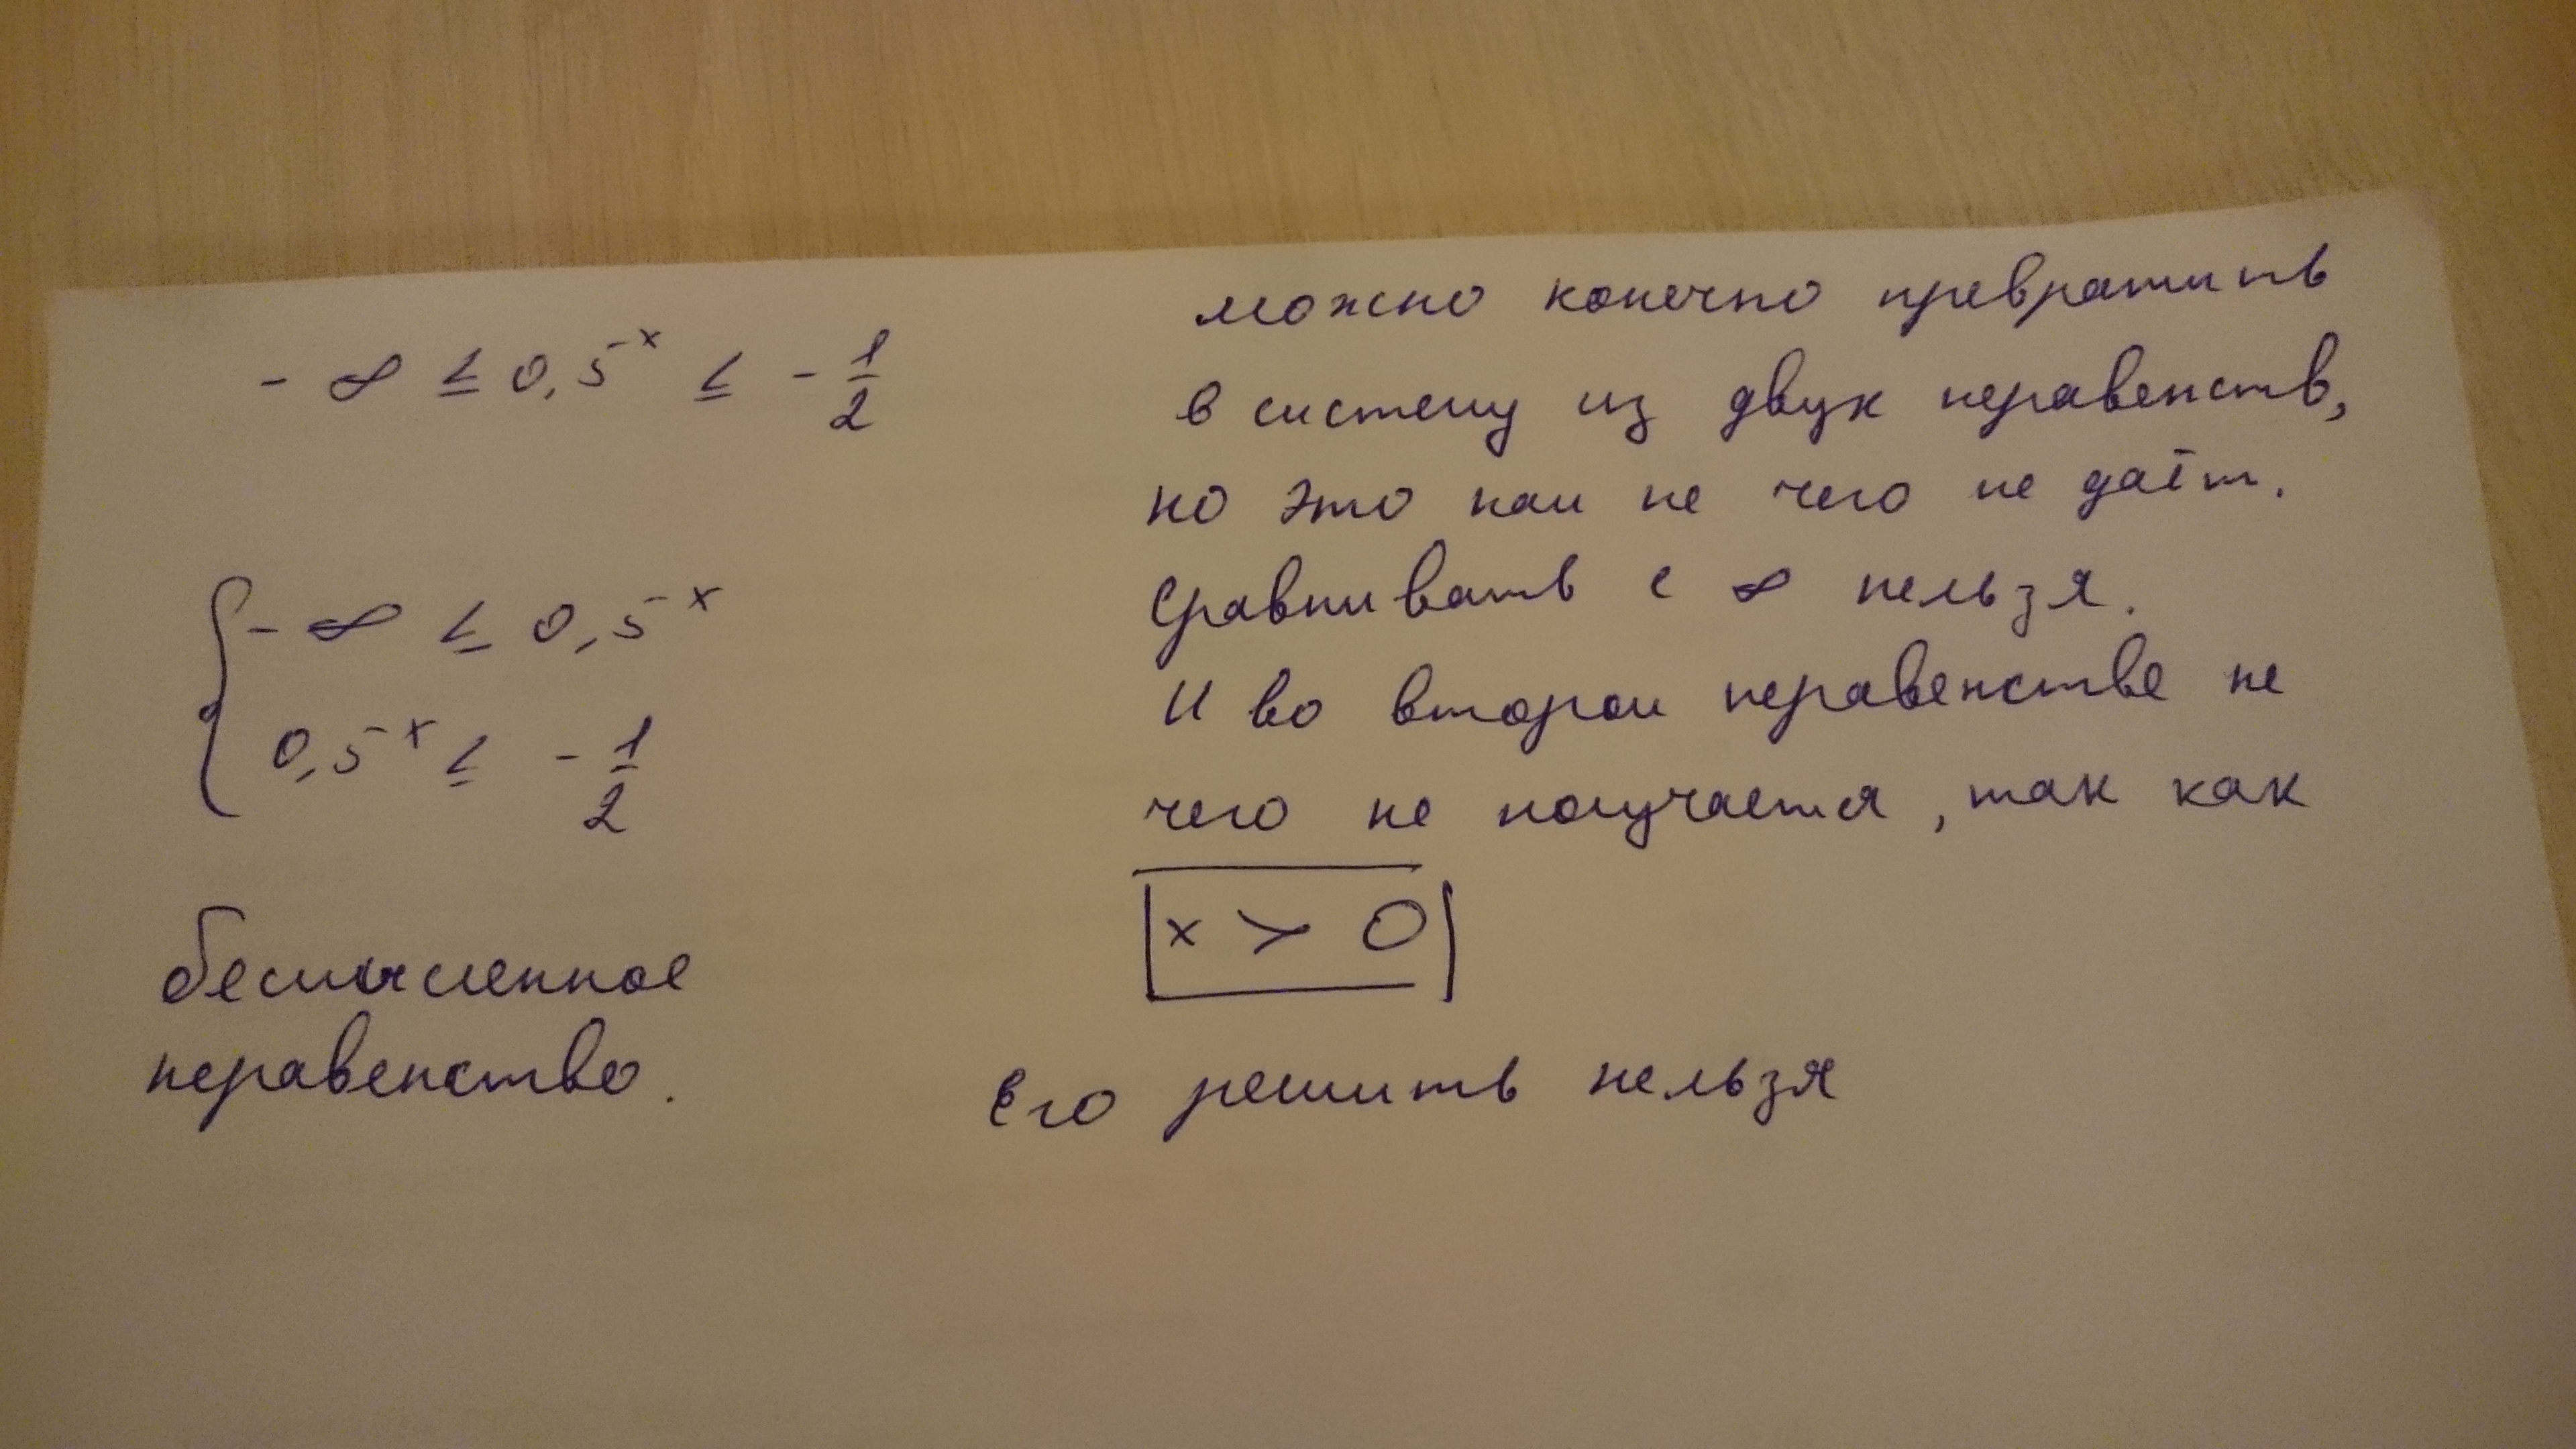 - ∞ ≤ 0,5^x ≤ - 1/2
{ - ∞ ≤ 0,5^x
0,5^x ≤ - 1/2
бесмысленное
неравенство.
можно конечно превратить
в систему из двух неравенств,
но это нам не чего не даёт.
Сравнивать с ∞ нельзя.
И во втором неравенстве не
чего не получается, так как
x > 0
Его решить нельзя